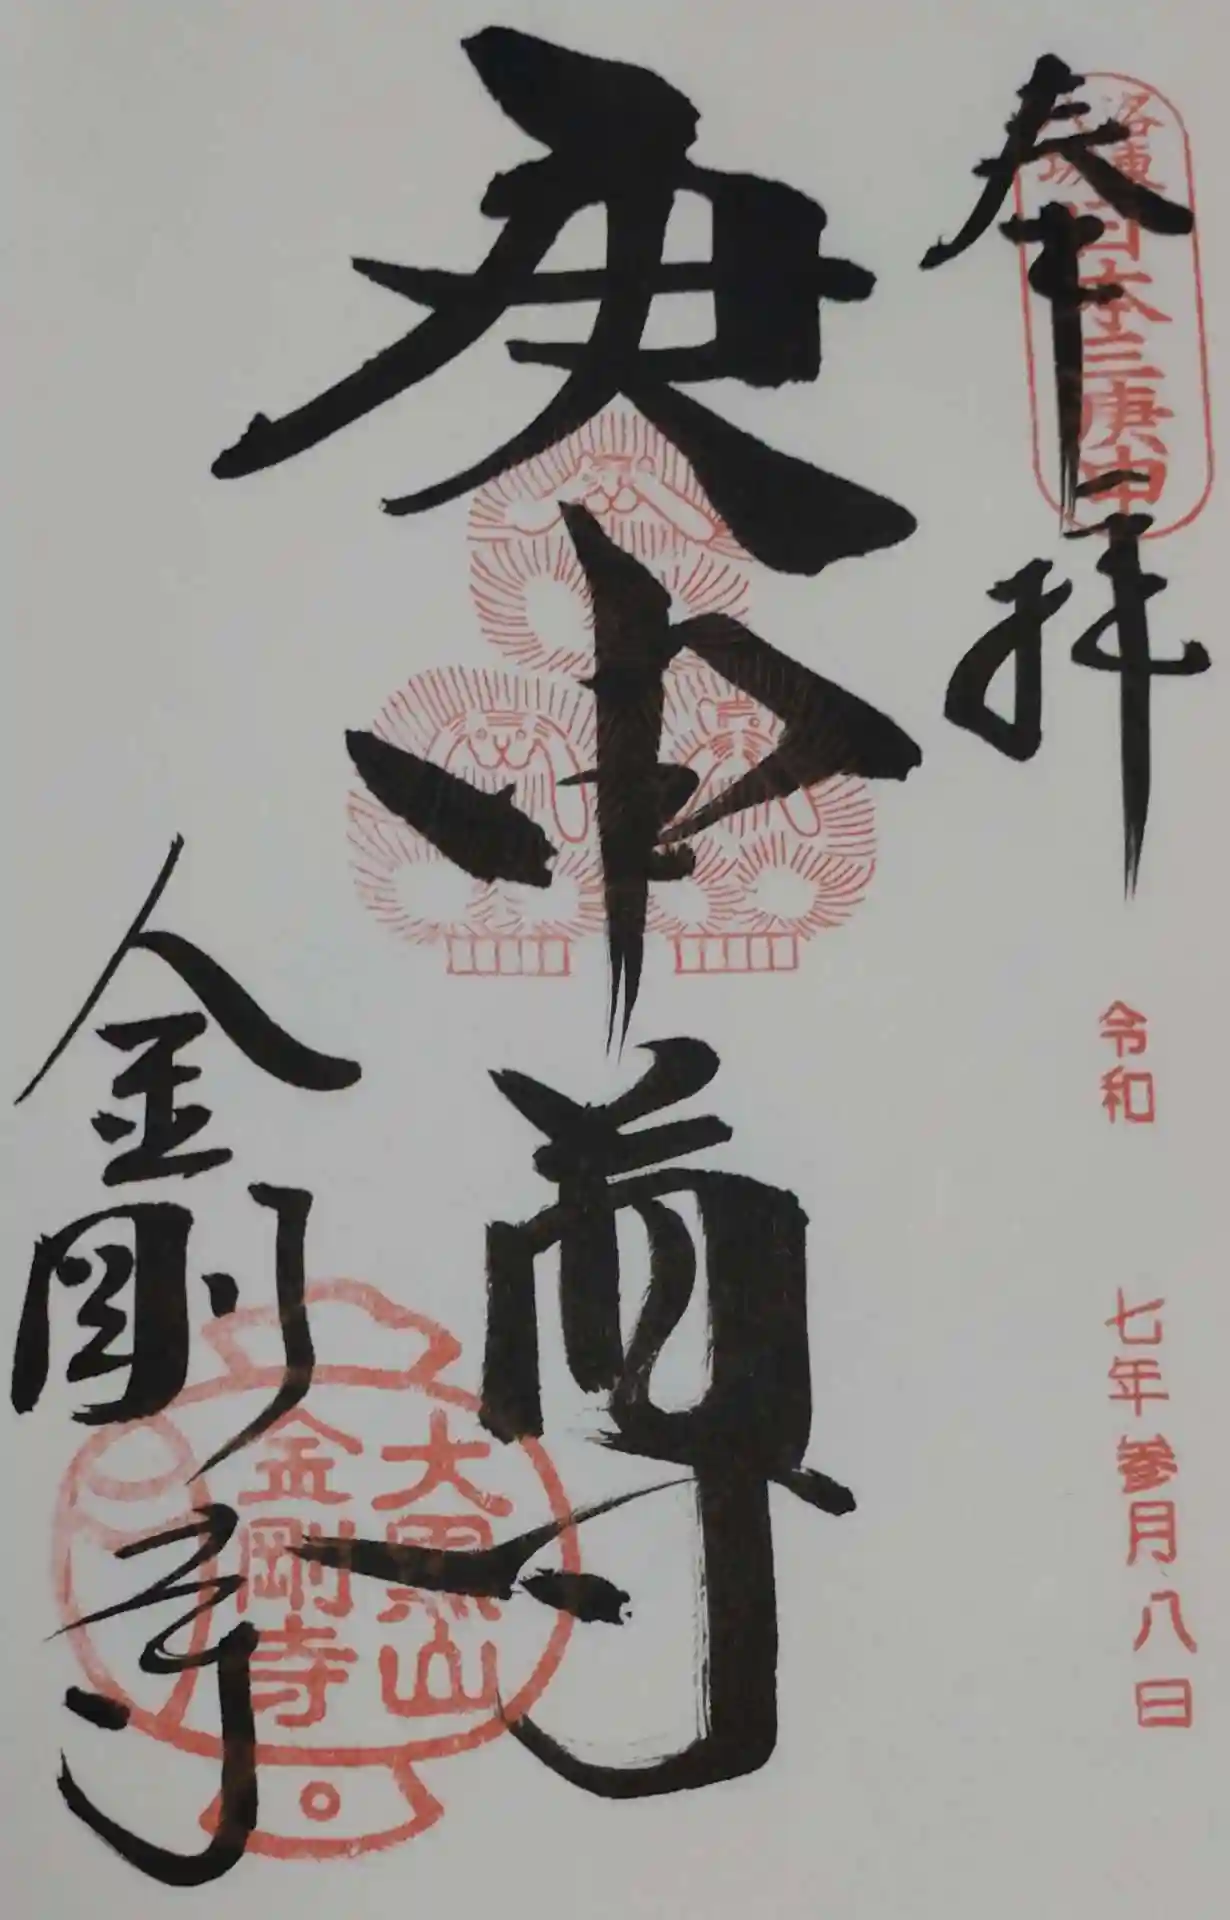 奉拝
洛東
日本三庚申
令和 七年 参月 八日
庚申尊
金剛寺
大黒山
金剛寺